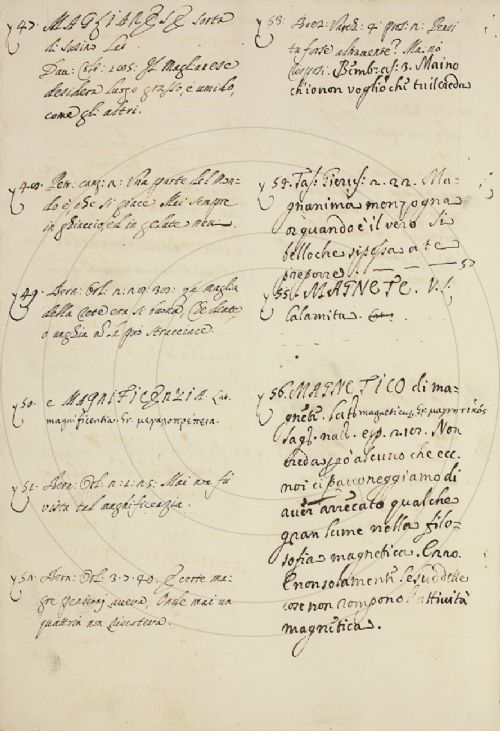 47. MAGLIANESE sorta
di susino Lat.
Dav: Colt: 205: Il Maglianese
desidera luogo grasso, e umido,
come gli altri.
48. Petr: canz: Una parte del Mon-
do è, che si giace Mai sempre
in ghiaccio, ed in gelate nevi.
49. Bern: Orl: maglia
della rete era sì buona, Che dente,
o unghia stracciare.
50. e MAGNIFICENZIA. Lat.
magnificentia. Gr. μεγαλοπρέπεια.
51. Bern: Orl: Mai non fu
vista tal magnificenzia.
52. Bern: Orl: E certe ma-
gre aveva, Onde mai un
quattrin non
53. Boez: Varch: 4: pros: Pensi
tu forse altramente? Ma nò
Bemb: as: 3. Maino
ch'io non voglio che tu il creda
54. Tass: Gierus: 2. 22. Ma-
gnanima menzogna
or quando è il vero Sì
bello che si possa a te
preporre.
55. MAGNETE. V.
Calamita.
56. MAGNETICO di ma-
gnete. Latt. magneticus, Gr. μαγνητικός
Sagg. nat. esp. Non
creda però alcuno che
noi ci pavoneggiamo di
aver arrecato qualche
gran lume nella filo-
sofia magnetica. E
non solamente le suddette
cose non rompono l'attività
magnetica.